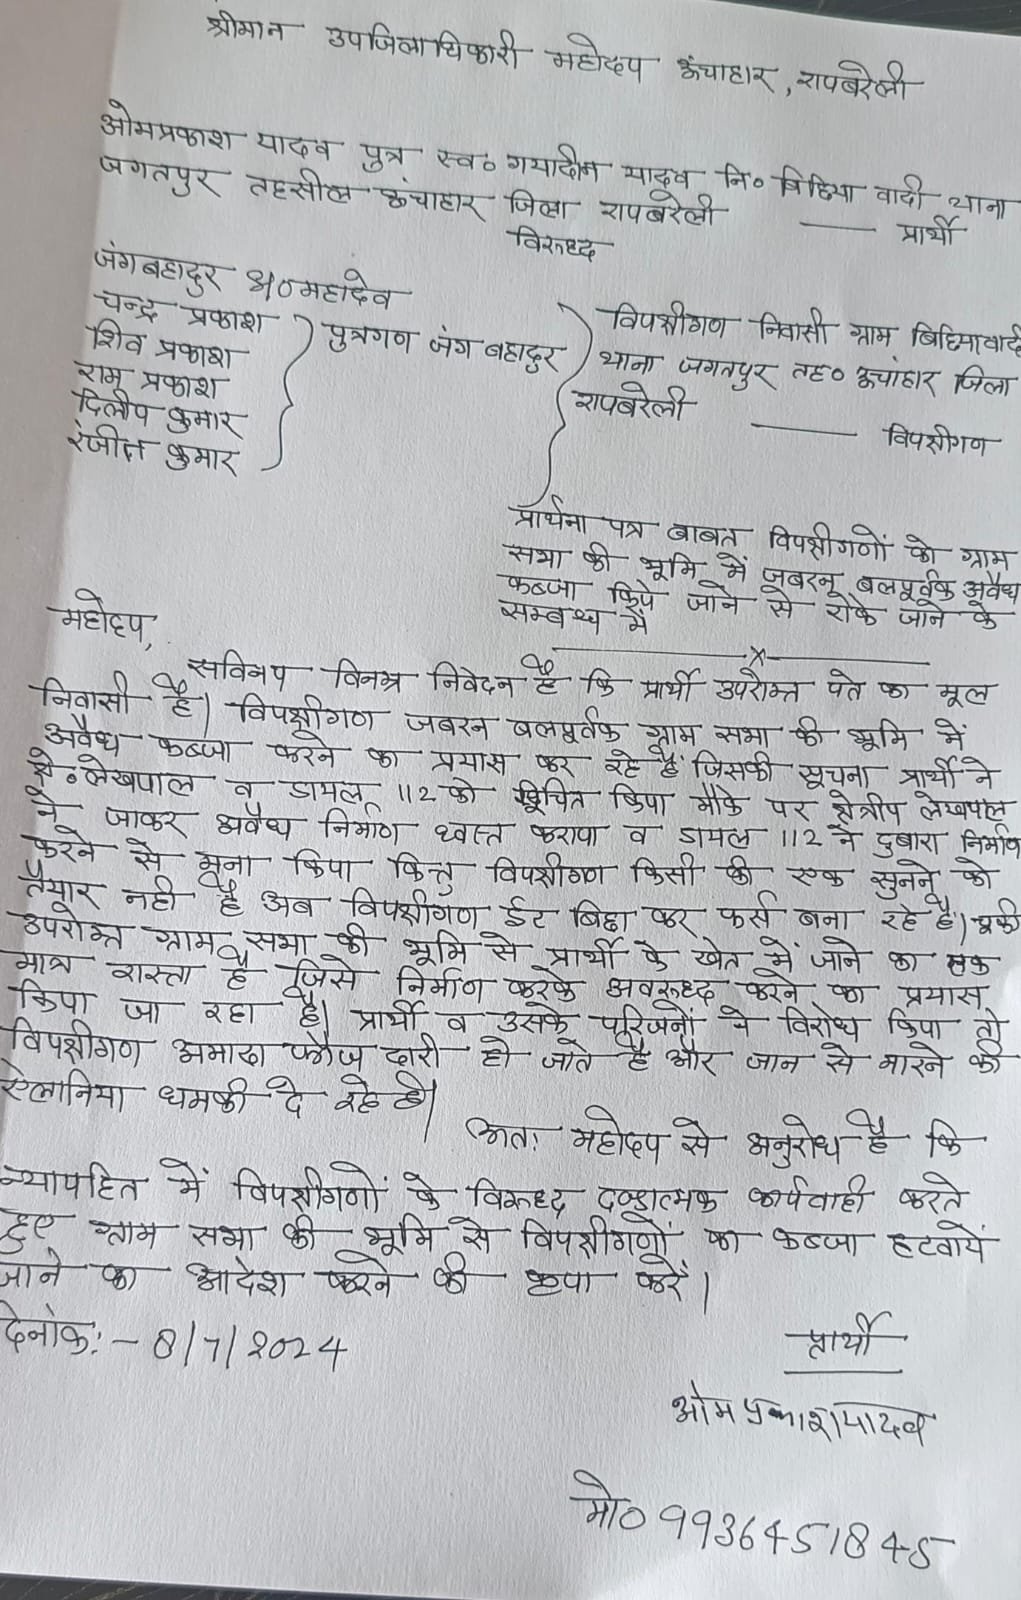 श्रीमान उपजिलाधिकारी महोदय ऊंचाहार, रायबरेली
ओमप्रकाश यादव पुत्र स्व० गयादीन यादव नि० बिहिया वादी थाना
जगतपुर तहसील ऊंचाहार जिला रायबरेली —— प्रार्थी
विरुध्द
जंगबहादुर S/० महादेव
चन्द्र प्रकाश
शिव प्रकाश
राम प्रकाश
दिलीप कुमार
रंजीत कुमार
पुत्रगण जंग बहादुर
विपक्षीगण निवासी ग्राम बिहियावादी
थाना जगतपुर तह० ऊंचाहार जिला
रायबरेली —— विपक्षीगण
प्रार्थना पत्र बाबत विपक्षीगणों को ग्राम
सभा की भूमि में जबरन बलपूर्वक अवैध
कब्जा किये जाने से रोके जाने के
सम्बन्ध में
महोदय,
——x——
सविनय विनम्र निवेदन है कि प्रार्थी उपरोक्त पते का मूल
निवासी है। विपक्षीगण जबरन बलपूर्वक ग्राम सभा की भूमि में
अवैध कब्जा करने का प्रयास कर रहे हैं जिसकी सूचना प्रार्थी ने
क्षे० लेखपाल व डायल 112 को सूचित किया मौके पर क्षेत्रीय लेखपाल
ने जाकर अवैध निर्माण ध्वस्त कराया व डायल 112 ने दुबारा निर्माण
करने से मना किया किन्तु विपक्षीगण किसी की एक सुनने को
तैयार नही है अब विपक्षीगण ईट बिछा कर फर्स बना रहे है।
उपरोक्त ग्राम सभा की भूमि से प्रार्थी के खेत में जाने का एक
मात्र रास्ता है जिसे निर्माण करके अवरूध्द करने का प्रयास
किया जा रहा है। प्रार्थी व उसके परिजनों ने विरोध किया तो
विपक्षीगण अमादा फौजदारी हो जाते है और जान से मारने की
ऐलानिया धमकी दे रहे है।
अतः महोदय से अनुरोध है कि
न्यायहित में विपक्षीगणों के विरूध्द दण्डात्मक कार्यवाही करते
हुए ग्राम सभा की भूमि से विपक्षीगणों का कब्जा हटवाये
जाने का आदेश करने की कृपा करें।
दिनांक:- 8/7/2024
प्रार्थी
ओम प्रकाश यादव
मो० 9936451845